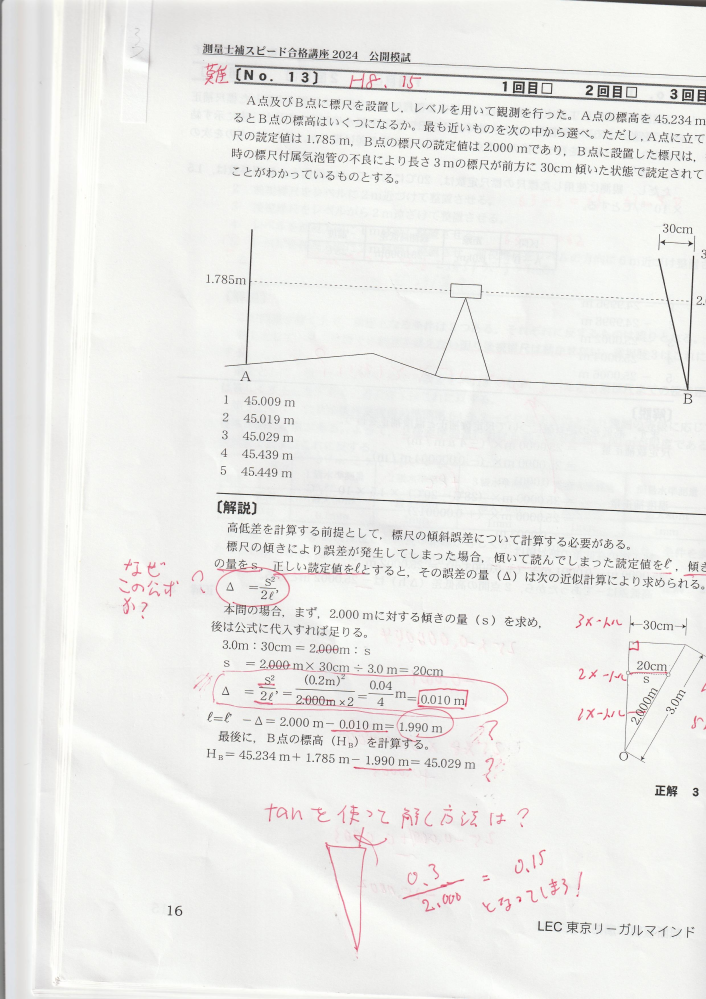 測量士補スピード合格講座 2024 公開模試
難 〔No. 13〕 H8. 15 1回目□ 2回目□ 3回目
A点及びB点に標尺を設置し，レベルを用いて観測を行った。A点の標高を 45.234 m
るとB点の標高はいくつになるか。最も近いものを次の中から選べ。ただし，A点に立て
尺の読定値は 1.785 m，B点の標尺の読定値は 2.000 mであり，B点に設置した標尺は，
時の標尺付属気泡管の不良により長さ３ｍの標尺が前方に 30cm 傾いた状態で読定されて
ことがわかっているものとする。
30cm
3
1.785m
2.
A
B
1 45.009 m
2 45.019 m
3 45.029 m
4 45.439 m
5 45.449 m
〔解説〕
高低差を計算する前提として，標尺の傾斜誤差について計算する必要がある。
標尺の傾きにより誤差が発生してしまった場合，傾いて読んでしまった読定値をℓ′，傾き
の量をs，正しい読定値をℓとすると，その誤差の量（Δ）は次の近似計算により求められる。
なぜ
この公式
か？
?
Δ ＝ s²/2ℓ′
本問の場合，まず，2.000 mに対する傾きの量（s）を求め，
後は公式に代入すれば足りる。
3.0m：30cm＝2.000m：s
s ＝2.000 m×30cm÷3.0 m＝20cm
Δ ＝ s²/2ℓ′ ＝ (0.2m)²/2.000m×2 ＝ 0.04/4 m＝0.010 m
ℓ＝ℓ′ －Δ＝2.000 m－0.010 m＝1.990 m ?
最後に，B点の標高（HB）を計算する。
HB＝45.234 m＋1.785 m－1.990 m＝45.029 m ?
3メートル
30cm
2メートル
20cm
s
1メートル
2.000m
3.0m
O
正解 3
tanを使って解く方法は？
0.3/2.000 = 0.15
となってしまう！
16
LEC 東京リーガルマインド